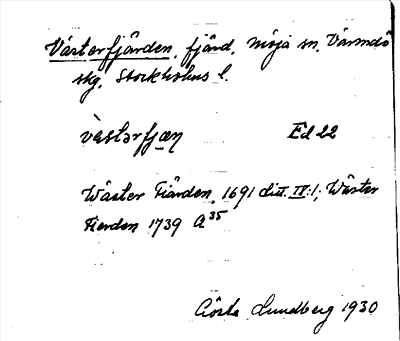 Västerfjärden, fjärd, Möja sn, Värmdö
skg, Stockholms l.
västərfjæṇ Ed 22
Wäster Fiärden, 1691 Lit. IV:1; Wäster
Fierden 1739 A 35
Gösta Lundberg 1930